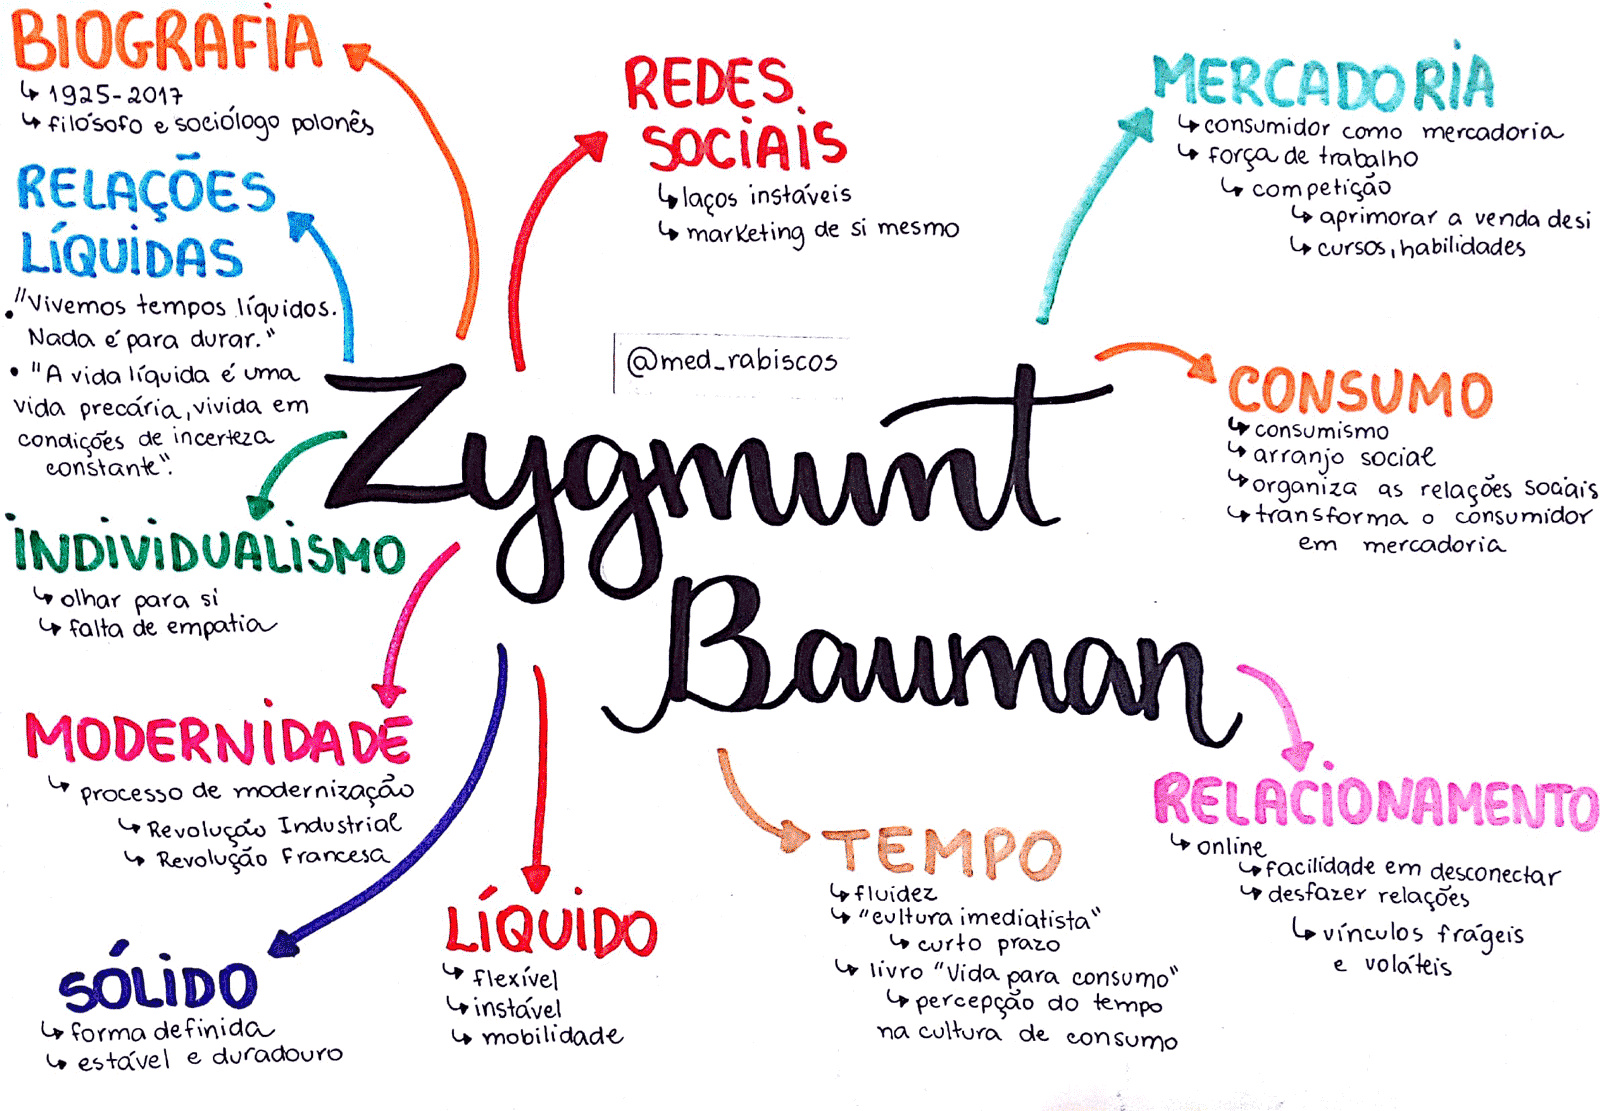 BIOGRAFIA
↳ 1925-2017
↳ filósofo e sociólogo polonês
RELAÇÕES
LÍQUIDAS
• "Vivemos tempos líquidos.
Nada é para durar."
• "A vida líquida é uma
vida precária, vivida em
condições de incerteza
constante".
INDIVIDUALISMO
↳ olhar para si
↳ falta de empatia
MODERNIDADE
↳ processo de modernização
↳ Revolução Industrial
↳ Revolução Francesa
SÓLIDO
↳ forma definida
↳ estável e duradouro
LÍQUIDO
↳ flexível
↳ instável
↳ mobilidade
REDES
SOCIAIS
↳ laços instáveis
↳ marketing de si mesmo
@med_rabiscos
Zygmunt
Bauman
MERCADORIA
↳ consumidor como mercadoria
↳ força de trabalho
↳ competição
↳ aprimorar a venda de si
↳ cursos, habilidades
CONSUMO
↳ consumismo
↳ arranjo social
↳ organiza as relações sociais
↳ transforma o consumidor
em mercadoria
TEMPO
↳ fluidez
↳ "cultura imediatista"
↳ curto prazo
↳ livro "Vida para consumo"
↳ percepção do tempo
na cultura de consumo
RELACIONAMENTO
↳ online
↳ facilidade em desconectar
↳ desfazer relações
↳ vínculos frágeis
e voláteis